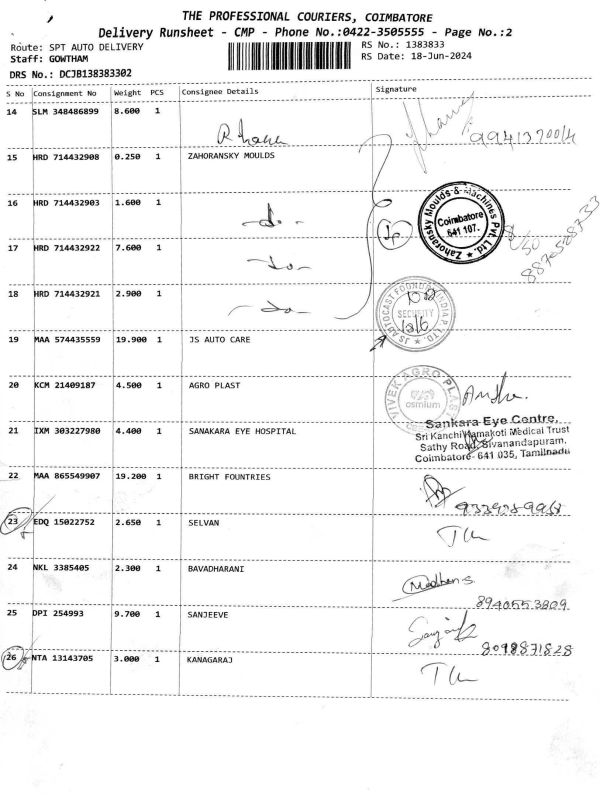 THE PROFESSIONAL COURIERS, COIMBATORE
Delivery Runsheet - CMP - Phone No.:0422-3505555 - Page No.:2
Route: SPT AUTO DELIVERY
RS No.: 1383833
Staff: GOWTHAM
RS Date: 18-Jun-2024
DRS No.: DCJB138383302
S No Consignment No Weight PCS Consignee Details Signature
14 SLM 348486899 8.600 1
15 HRD 714432908 0.250 1 ZAHORANSKY MOULDS
16 HRD 714432903 1.600 1
-do-
Zahoransky Moulds & Machines Pvt. Ltd.
Coimbatore
641 107.
17 HRD 714432922 7.600 1
-do-
18 HRD 714432921 2.900 1
-do-
JS AUTOCAST FOUNDRY INDIA P. LTD.
SECURITY
19 MAA 574435559 19.900 1 JS AUTO CARE
20 KCM 21409187 4.500 1 AGRO PLAST
VIVEK AGRO PLAST
osmium
21 IXM 303227980 4.400 1 SANAKARA EYE HOSPITAL
Sankara Eye Centre,
Sri Kanchi Kamakoti Medical Trust
Sathy Road, Sivanandapuram,
Coimbatore- 641 035, Tamilnadu
22 MAA 865549907 19.200 1 BRIGHT FOUNTRIES
23 EDQ 15022752 2.650 1 SELVAN
24 NKL 3385405 2.300 1 BAVADHARANI
Madhan.S.
8940553809
25 DPI 254993 9.700 1 SANJEEVE
8098871828
26 NTA 13143705 3.000 1 KANAGARAJ